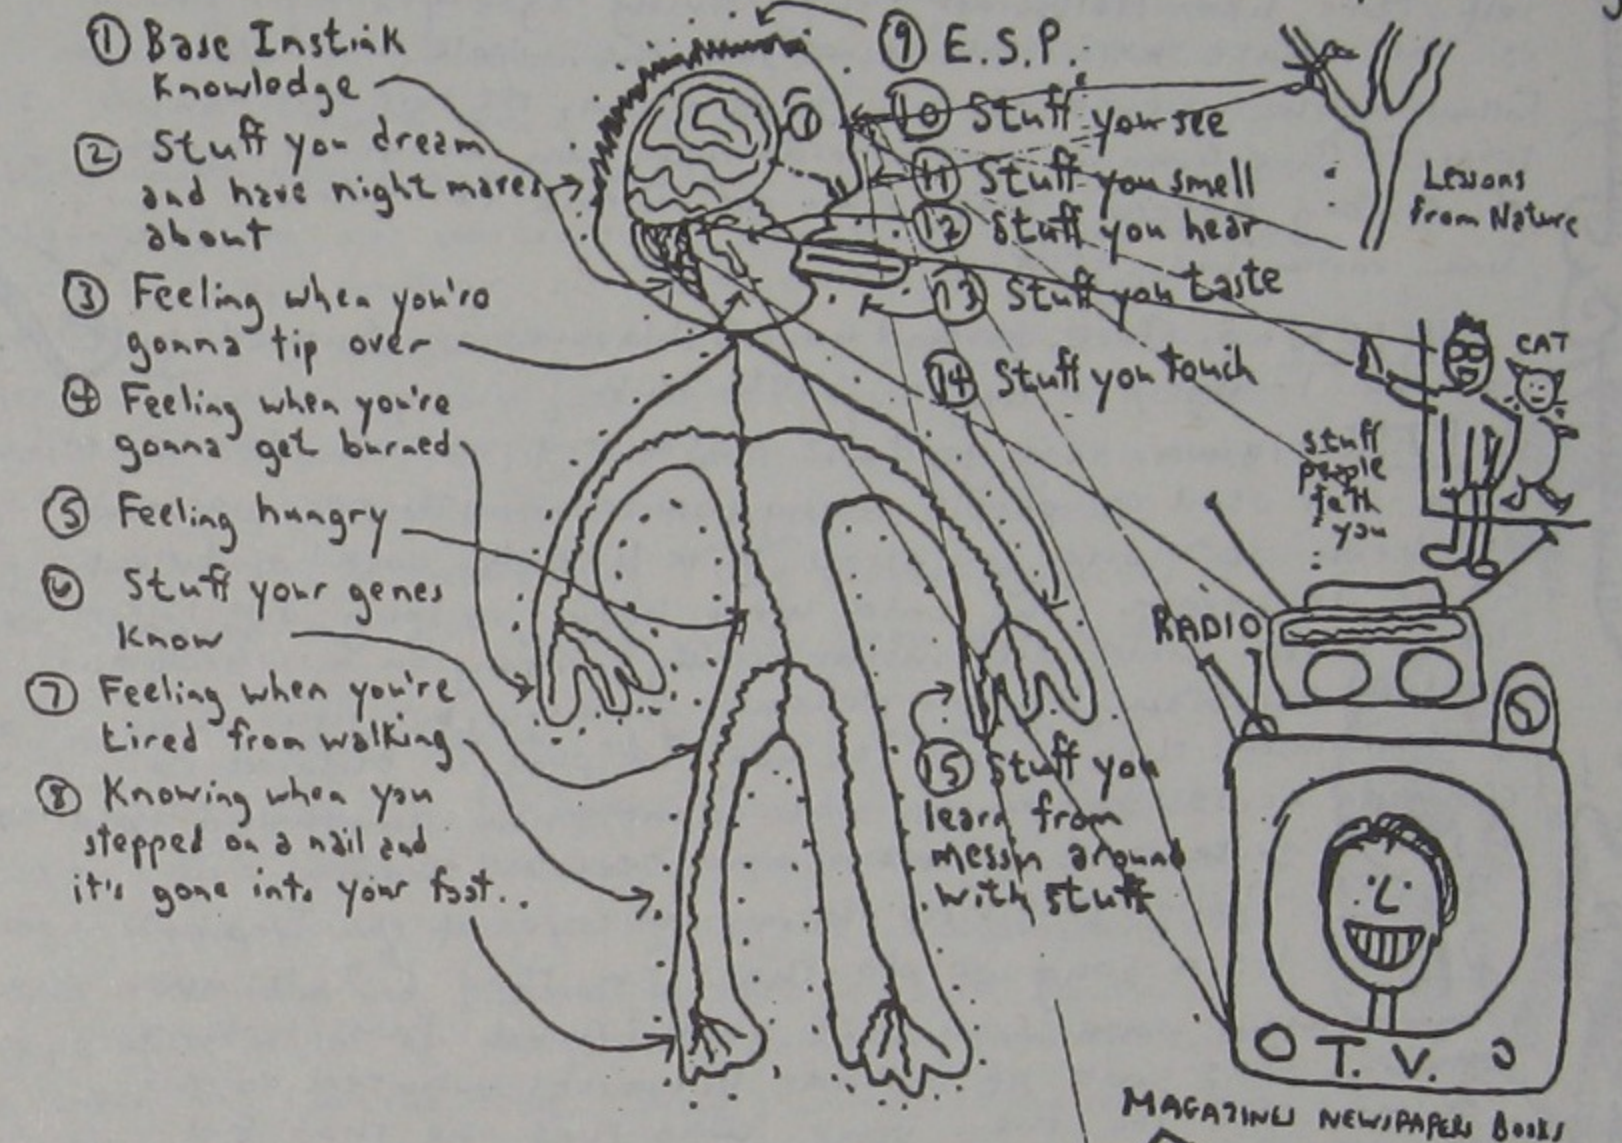 ① Base Instink
Knowledge
② Stuff you dream
and have nightmares
about
③ Feeling when you're
gonna tip over
④ Feeling when you're
gonna get burned
⑤ Feeling hungry
⑥ Stuff your genes
know
⑦ Feeling when you're
tired from walking
⑧ Knowing when you
stepped on a nail and
it's gone into your foot..
⑨ E.S.P.
⑩ Stuff you see
⑪ Stuff you smell
⑫ Stuff you hear
⑬ Stuff you taste
⑭ Stuff you touch
⑮ Stuff you
learn from
messin around
with stuff
Lessons
from Nature
CAT
stuff
people
you
RADIO
T.V.
MAGAZINES NEWSPAPERS BOOKS